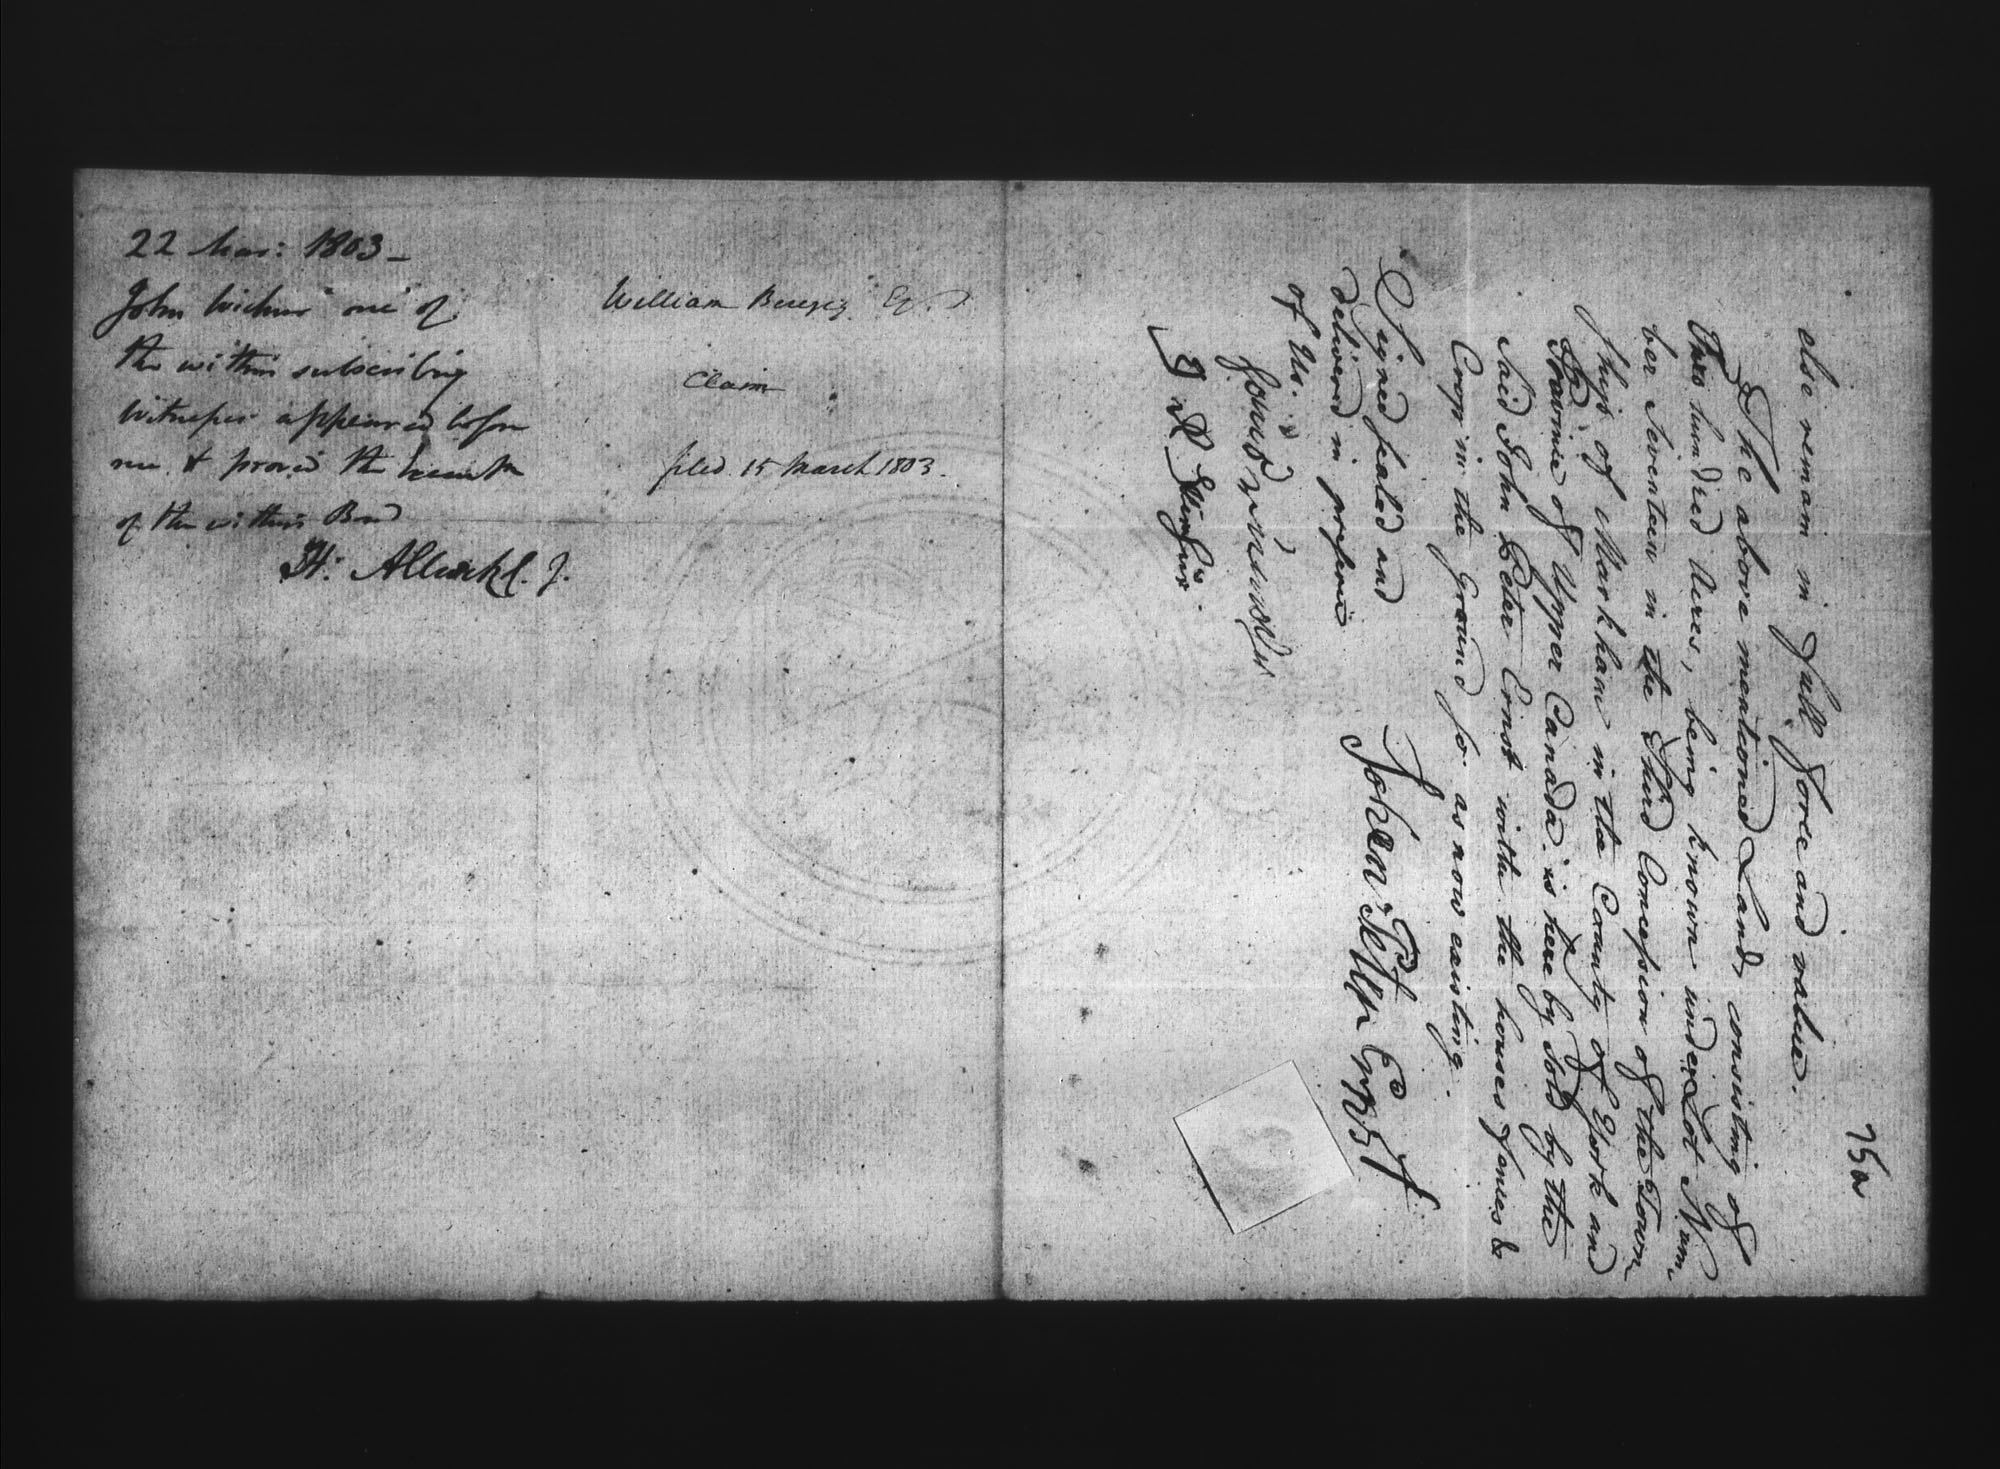 22 Mar: 1803 –
John one of
the within subscribing
Witnesses appeared before
me & proved the
of the within Bond
H: Allcock C. J.
William Berczy Esq.
Claim
filed 15 March 1803.
75a
else remain in full force and value.
The above mentioned Land, consisting of
Two hundred Acres, being known under Lot Num-
ber Seventeen in the Third Concession of the Town-
ship of Markham in the County of York and
Province of Upper Canada is here by Sold by the
Said John Peter Ernst with the houses fences &
Crop in the Ground so as now existing.
Signed sealed and
delivered in presence
of Us.
J A